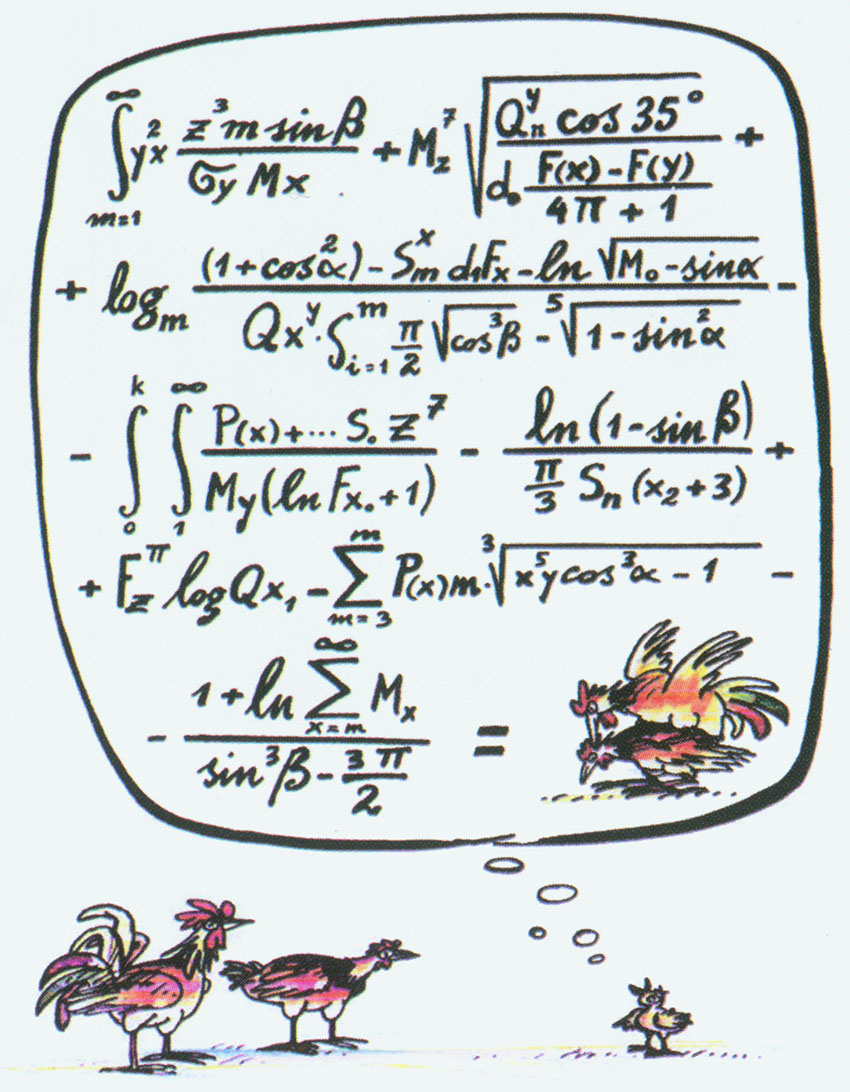 ∞∫m=1 yx² z³m sin β / σy Mx + M⁷z √(Qʸn cos 35° / d₀ (F(x) - F(y) / 4π + 1)) +
+ logm ((1 + cos²α) - Sˣm d₁Fx - ln √(M₀ - sinα)) / (Qxʸ · Sᵐi=1 π/2 √(cos³β) - ⁵√(1 - sin²α)) -
- ∫₀ᵏ ∫₁^∞ (P(x) + ... S₀ z⁷) / (My (ln Fx₀ + 1)) - ln (1 - sin β) / (π/3 Sn (x₂ + 3)) +
+ Fz^π log Qx₁ - Σ^m m=3 P(x)m · ³√(x⁵y cos³α - 1) -
- (1 + ln Σ^∞ x=m Mx) / (sin³β - 3π/2) =